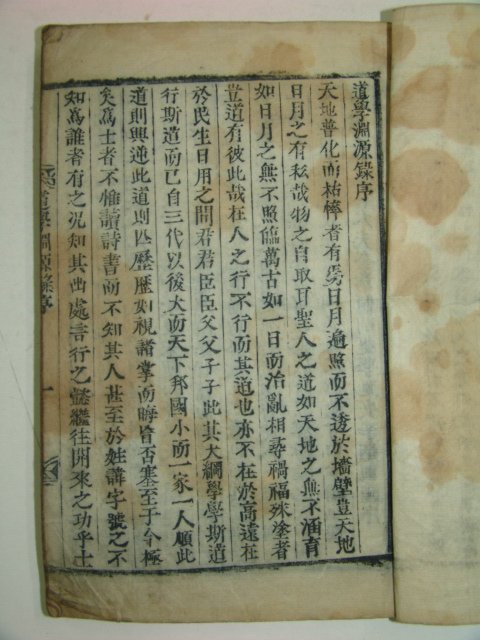 道學淵源錄序
天地普化而枯悴者有焉日月遍照而不透於墻壁豈天地
日月之有私哉物之自取耳聖人之道如天地之無不涵育
如日月之無不照臨萬古如一日而治亂相尋禍福殊塗者
豈道有彼此哉在人之行不行而其道也亦不在於高遠在
於民生日用之間君君臣臣父父子子此其大綱學學斯道
行斯道而已自三代以後大而天下邦國小而一家一人順此
道則興逆此道則亡歷歷如視諸掌而晦盲否塞至于今極
矣爲士者不惟讀詩書而不知其人甚至於姓諱字號之不
知爲誰者有之況知其出處言行之懿繼往開來之功乎士
道學淵源錄序
一